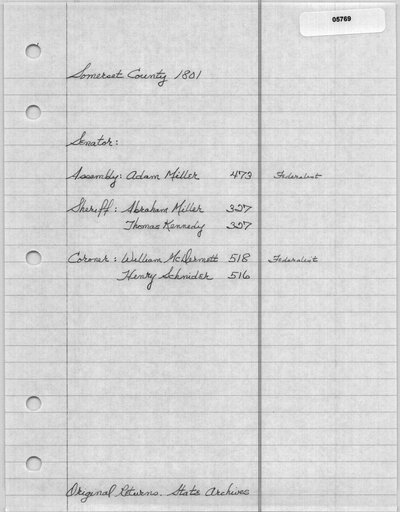 05769
Somerset County 1801
Senator:
Assembly: Adam Miller 473 Federalist
Sheriff: Abraham Miller 327
Thomas Kennedy 327
Coroner: William McDermott 518 Federalist
Henry Schnider 516
Original Returns. State Archives